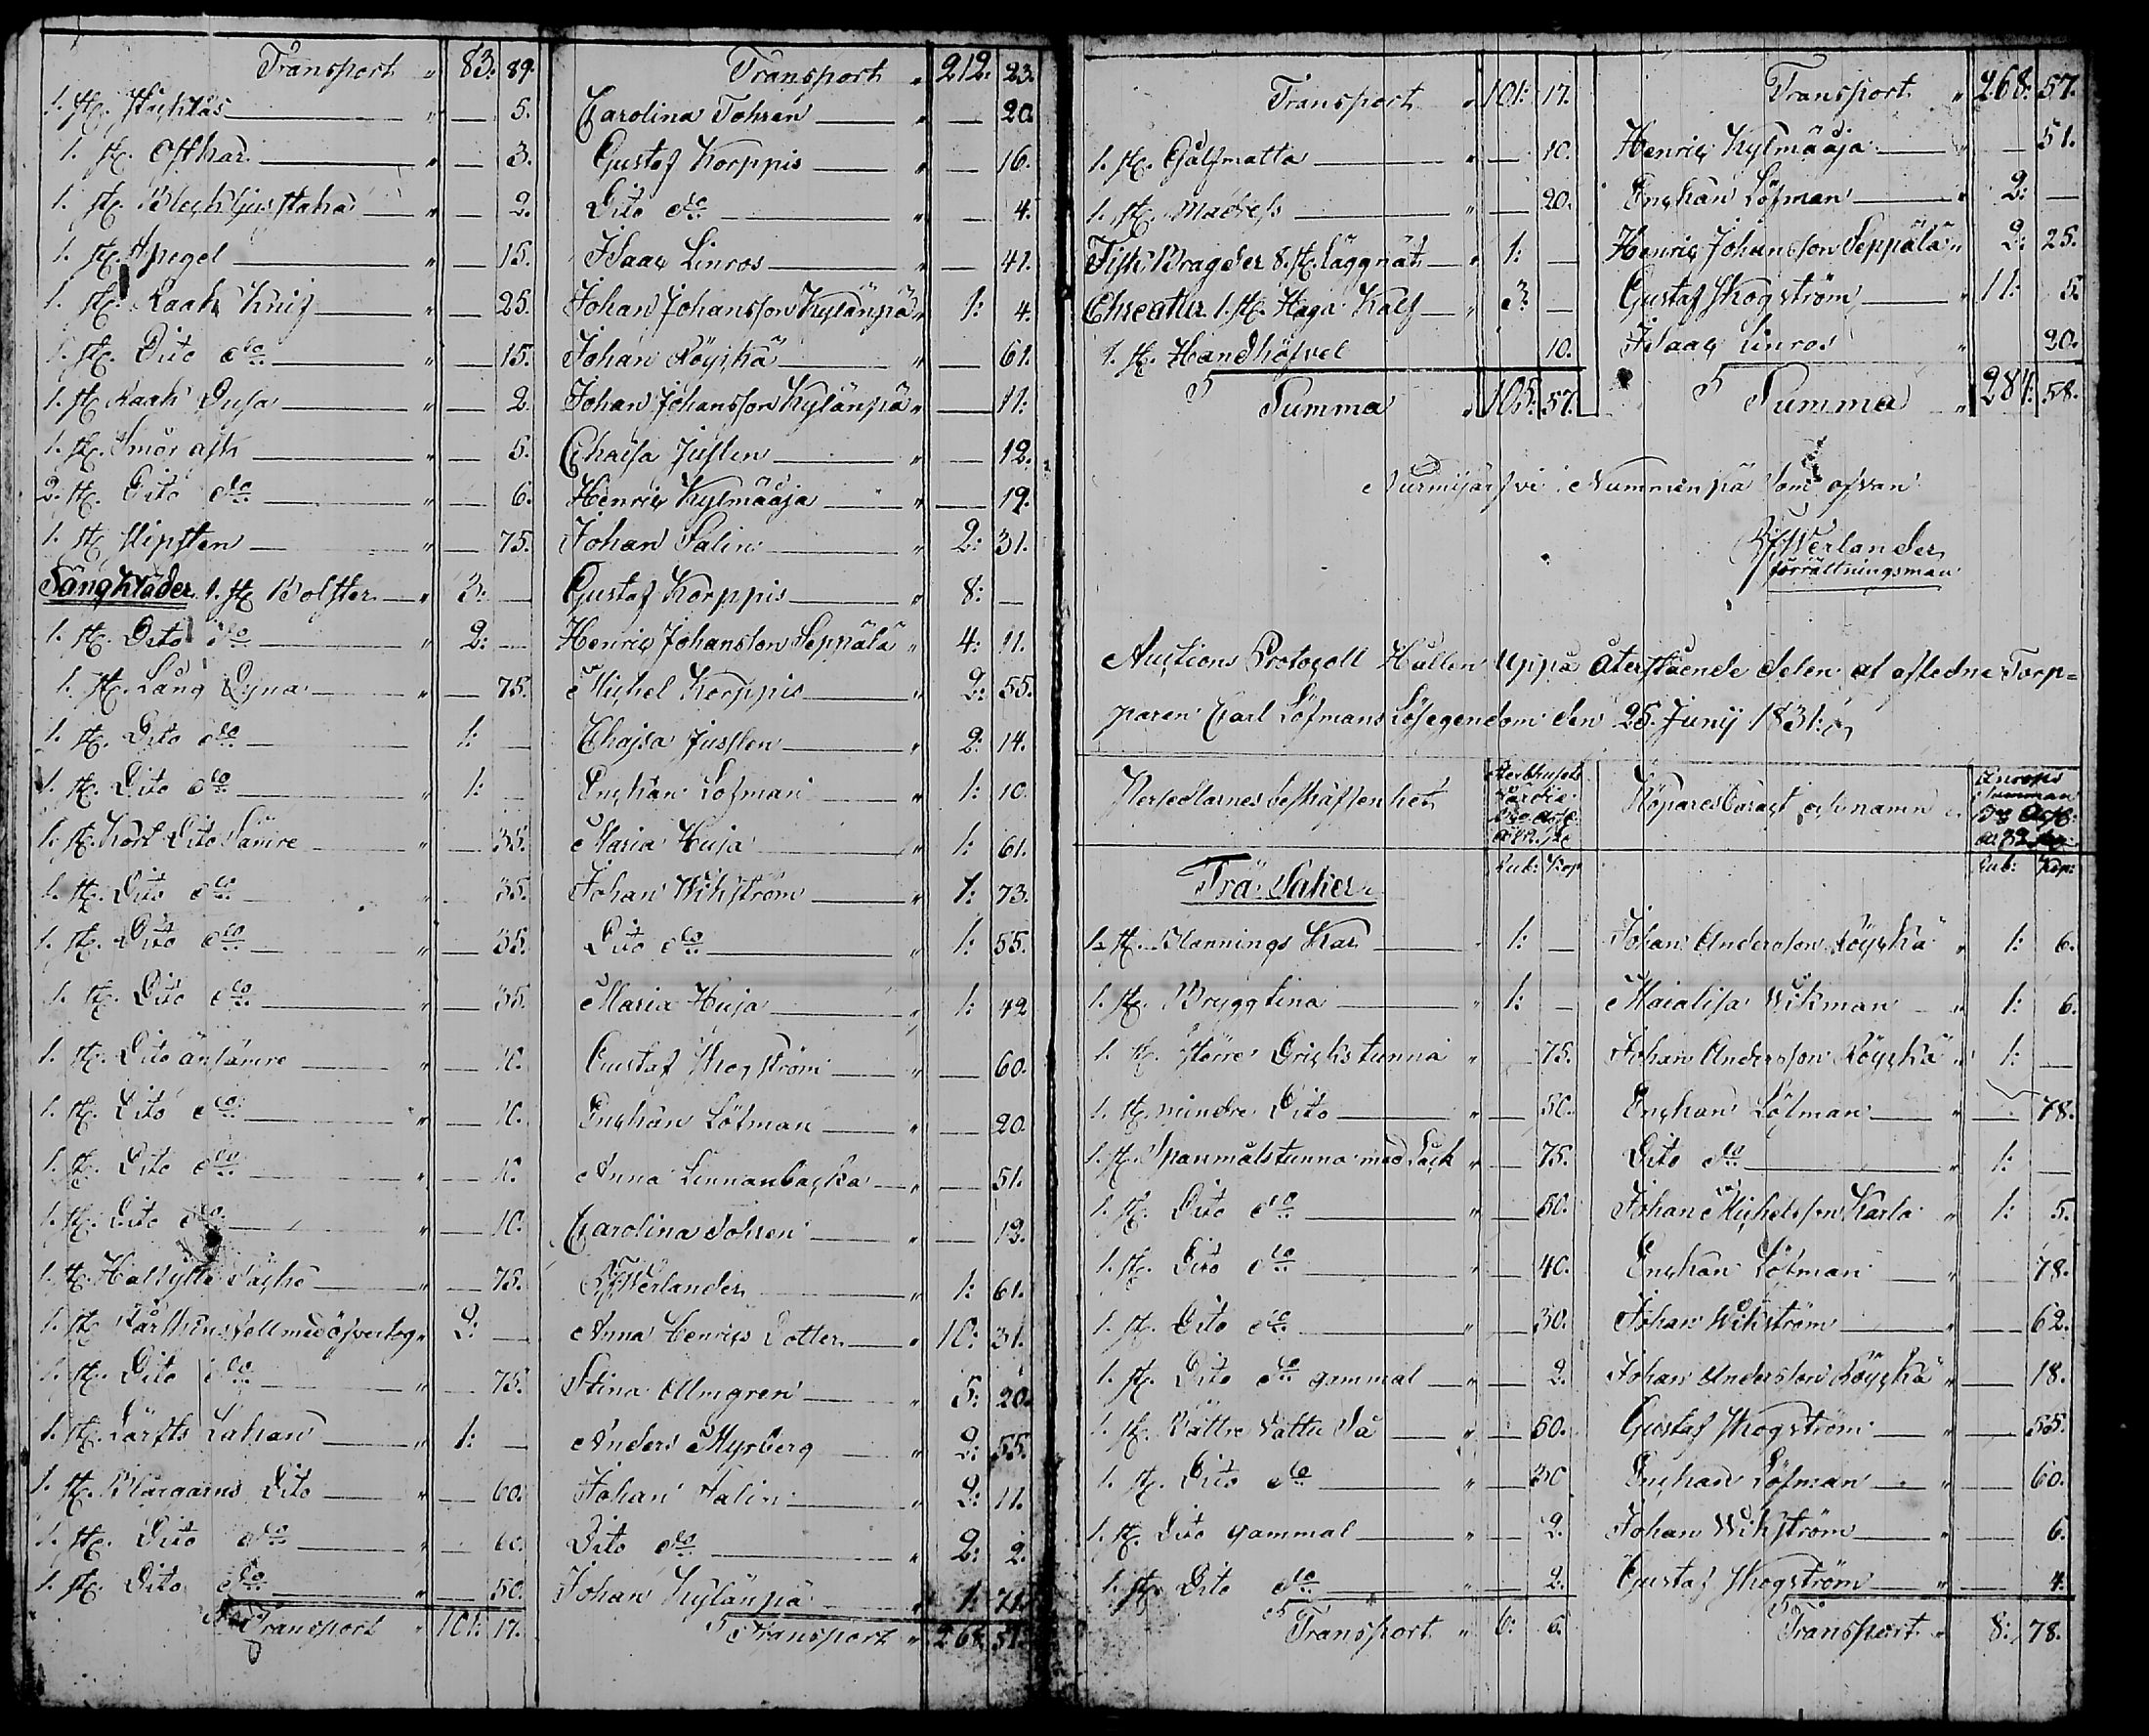 Transport " 83. 89. Transport " 212. 23.
1. st. " — 5. Carolina Tohsen " — 20.
1. st. Osthar " — 3. Gustaf Korppis " — 16.
1. st. Blech Ljusstaka " — 2. Dito do " — 4.
1. st. Spegel " — 15. Isaac Linros " — 41.
1. st. Raak Knif " — 25. Johan Johansson Kylänpä " 1: 4.
1. st. Dito do " — 15. Johan Röyskä " — 61.
1. st. Raak Dusa " — 2. Johan Johansson Kylänpä " — 11:
1. st. Smör ask " — 5. Chaisa Juslen " — 12.
2. st. Dito do " — 6. Henric Kylmäoja " — 19.
1. st. Slipsten " — 75. Johan Salin " 2: 31.
Sängkläder 1. st. Bolster " 3: — Gustaf Korppis " 8: —
1. st. Dito do " 2: — Henric Johansson Seppälä " 4: 11.
1. st. Lång Dyna " — 75. Michel Korppis " 2: 55.
1. st. Dito do " 1: — Chajsa Juslen " 2: 14.
1. st. Dito do " 1: — Enchan Löfman " 1: 10.
1. st. Kort Dito Sämre " — 35. Maria Huja " 1: 61.
1. st. Dito do " — 35. Johan Wikström " 1: 73.
1. st. Dito do " — 35. Dito do " 1: 55.
1. st. Dito do " — 35. Maria Huja " 1: 42
1. st. Dito än sämre " — 10. Gustaf Skogström " — 60.
1. st. Dito do " — 10. Enchan Löfman " — 20.
1. st. Dito do " — 10. Anna Linnanbacka " — 51.
1. st. Dito do " — 10. Carolina Tohsen " — 13.
1. st. " — 75. Werlander " 1: 61.
1. st. Fårskinsfell med öfvertog " 2: — Anna Henrics Dotter " 10: 31.
1. st. Dito do " — 75. Stina Almgren " 5: 20.
1. st. Lärfts Lakan " 1: — Anders Myrberg " 2: 55.
1. st. Blaggarns Dito " — 60. Johan Salin " 2: 11.
1. st. Dito do " — 60. Dito do " 2: 2.
1. st. Dito do " — 50. Johan Kylänpä " 1: 71.
Transport " 101: 17. Transport " 268. 57.
Transport " 101: 17. Transport " 268. 57.
1. st. Gålfmatta " — 10. Henric Kylmäoja " — 51.
1. st. Madress " — 20. Enchan Löfman " 2: —
Fisk Bragder 8. st. Läggnät " 1: — Henric Johansson Seppälä " 2: 25.
Chreatur 1. st. Kalf " 3: — Gustaf Skogström " 11: 5.
1. st. Handhöfvel 10. Isaac Linros " 20.
Summa " 105: 57. Summa " 284: 58.
Nurmijärfvi Numminpä som ofvan
Werlander
förrättningsman
Auctions Protocoll Hållen uppå återstående delen af afledne Torp=
paren Carl Löfmans Lösegendom den 25. Junij 1831:
Persedlarnes beskaffenhet Sterbhusets Värdie Köpares Caract och namn Anrops Summan
Rub: Kop Rub: Kop:
Trä Saker
1. st. Blannings Kar 1: — Johan Andersson Röyskä " 1: 6.
1. st. Brygg tina " 1: — Maialisa Wikman " 1: 6.
1. st. större Drickstunna " — 75. Johan Andersson Röyskä " 1: —
1. st. mindre Dito " — 50. Enchan Löfman " — 78.
1. st. Spanmålstunna med Lack " — 75. Dito do " 1: —
1. st. Dito do " — 50. Johan Michelsson Karla " 1: 5.
1. st. Dito do " — 40. Enchan Löfman — 78.
1. st. Dito do " — 30. Johan Wikström " — 62.
1. st. Dito do gammal " — 2. Johan Andersson Röyskä " — 18.
1. st. Bättre Vattu Så " — 50. Gustaf Skogström " — 55.
1. st. Dito do " — 30 Enchan Löfman " — 60.
1. st. Dito gammal " — 2. Johan Wikström " — 6.
1. st. Dito do " — 2. Gustaf Skogström " — 4.
Transport " 6: 6. Transport " 8: 78.